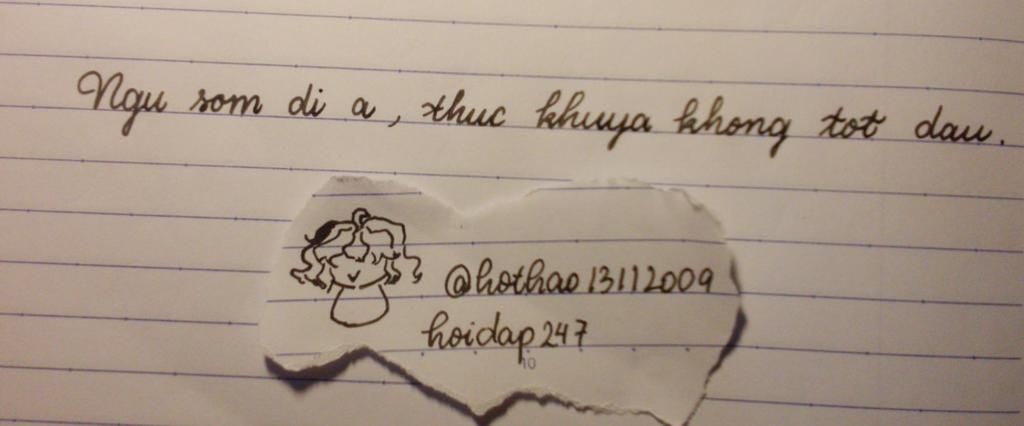 Ngu som di a, thuc khuya khong tot dau.
@hothao13112009
hoidap247
10